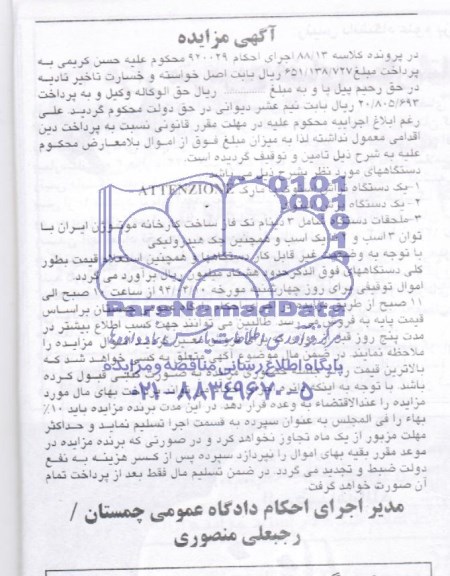 آگهی مزایده
در پرونده کلاسه ۸۸/۱۳ اجرای احکام ۹۲۰۰۲۹ محکوم علیه حسن کریمی به
پرداخت مبلغ ۶۵۱/۱۳۸/۷۲۷ ریال بابت اصل خواسته و خسارت تاخیر تادیه
در حق رحیم پیل پا و به مبلغ ریال حق الوکاله وکیل و به پرداخت
۲۰/۸۰۵/۶۹۳ ریال بابت نیم عشر دیوانی در حق دولت محکوم گردید علی
رغم ابلاغ اجراییه محکوم علیه در مهلت مقرر قانونی نسبت به پرداخت دین
اقدامی معمول نداشته لذا به میزان مبلغ فوق از اموال بلامعارض محکوم
علیه به شرح ذیل تامین و توقیف گردیده است.
دستگاههای مورد نظر بشرح ذیل
۱-یک دستگاه مارک ATTENZIONE
۲- یک دستگاه
۳-ملحقات دستگاه شامل ۳ دینام تک فاز ساخت کارخانه موتوژن ایران با
توان ۳ اسب و یک اسب و همچنین جک هیدرولیکی
با توجه به وضعیت غیر قابل کار دستگاهها و همچنین استعلام قیمت بطور
کلی دستگاههای فوق الذکر حدود هشتاد میلیون ریال برآورد می گردد.
اموال توقیفی برای روز چهارشنبه مورخه از ساعت ۱۰ صبح الی
۱۱ صبح از طریق مزایده براساس
قیمت پایه به فروش می رسد طالبین می توانند جهت کسب اطلاع بیشتر در
مدت پنج روز قبل مزایده را
ملاحظه نمایند. در ضمن مال موضوع آگهی متعلق به کسی خواهد شد که
بالاترین قیمت را قبول کرده
باشد. با توجه به اینکه بهای مال مورد
مزایده را عندالاقتضاء به وعده قرار دهد، در این مدت برنده مزایده باید ۱۰٪
بهاء را فی المجلس به عنوان سپرده به قسمت اجرا تسلیم نماید و حداکثر
مهلت مزبور از یک ماه تجاوز نخواهد کرد و در صورتی که برنده مزایده در
موعد مقرر بقیه بهای اموال را نپردازد سپرده پس از کسر هزینه به نفع
دولت ضبط و تجدید می گردد. در ضمن تسلیم مال فقط بعد از پرداخت تمام
آن صورت خواهد گرفت.
مدیر اجرای احکام دادگاه عمومی چمستان /
رجبعلی منصوری
ParsNamadData
پایگاه اطلاع رسانی مناقصه و مزایده
۰۲۱-۸۸۳۴۹۶۷۰-۵